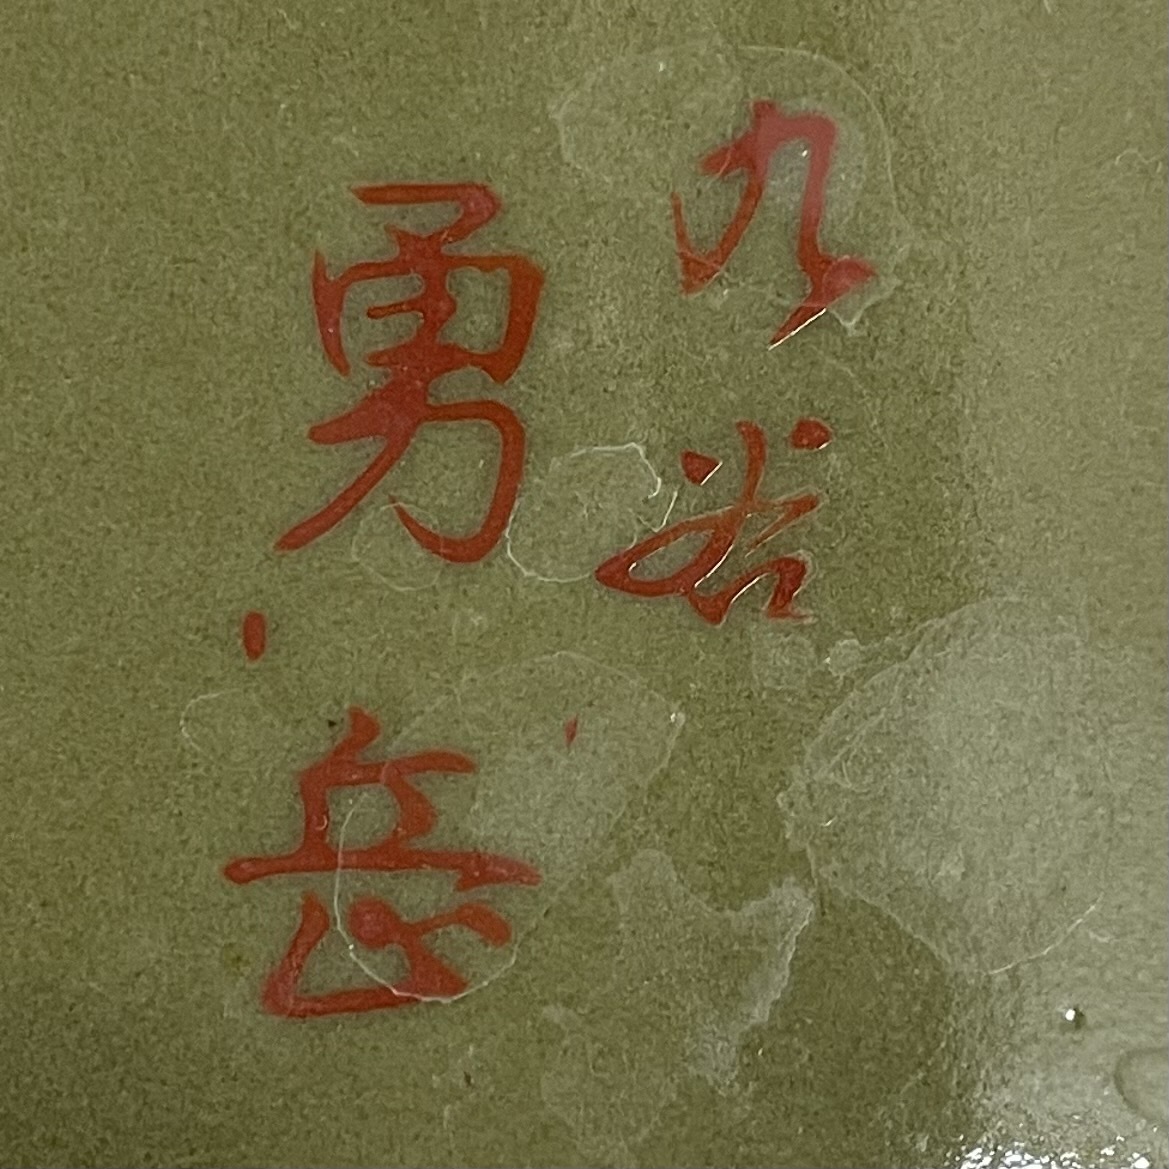 九谷
勇岳